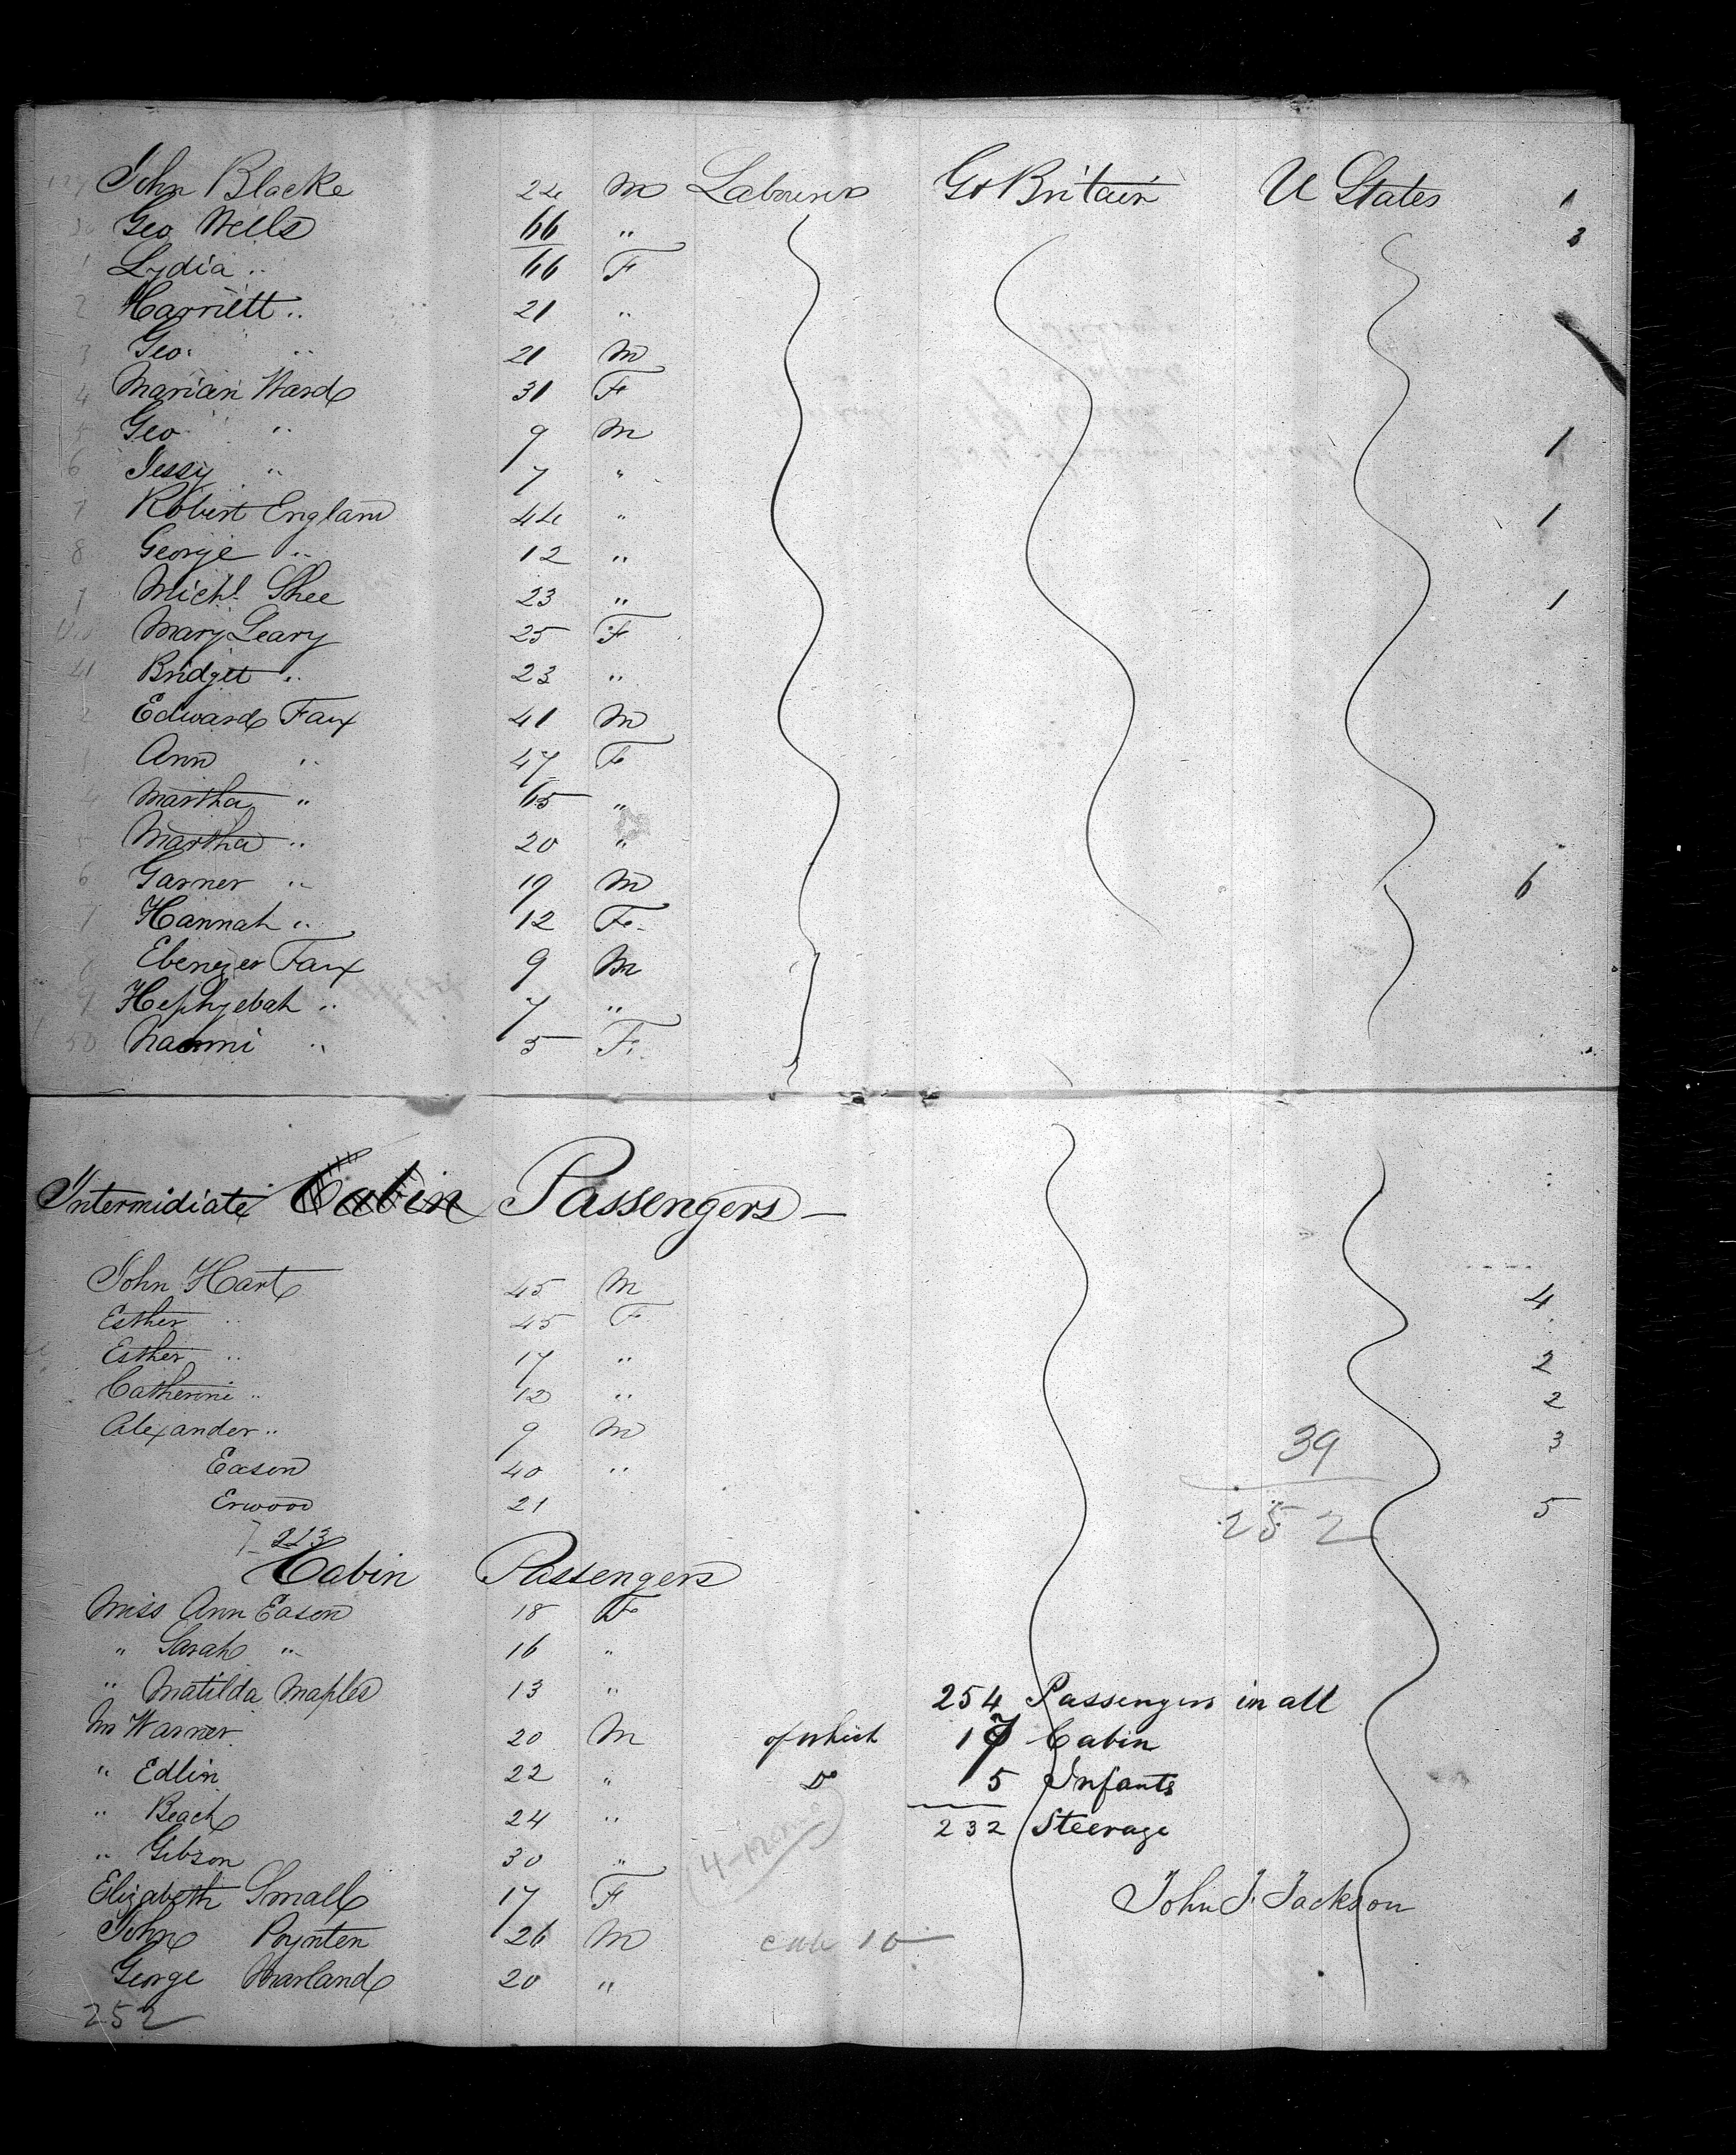 John Blacke 24 M Labourer Gt Britain U States 1
Geo Wells 66 " 3
Lydia " 66 F
2 Harriett " 21 "
3 Geo. " 21 M
4 Marian Ward 31 F
5 Geo " 9 M 1
6 Jessy " 7 "
7 Robert England 44 " 1
8 George " 12 "
Michl Shee 23 " 1
Mary Leary 25 F
41 Bridget " 23 "
2 Edward Faux 41 M
Ann " 47 F
4 Martha " 65 "
5 Martha " 20 "
6 Garner " 19 M 6
7 Hannah " 12 F
Ebenezer Faux 9 M
9 Hephzebah " 7 "
50 Naomi " 5 F.
Intermidiate Cabin Passengers —
John Hart 45 M 4
Esther " 45 F
Esther " 17 " 2
Catherine " 12 " 2
Alexander " 9 M 39 3
Eason 40 "
Erwood 21 252 5
213
Cabin Passengers
Miss Ann Eason 18 F
" Sarah " 16 "
" Matilda Maples 13 " 254 Passengers in all
Mr Warner 20 M of which 17 Cabin
" Edlin 22 " Do 5 Infants
" Beach 24 " 232 Steerage
" Gibson 30 "
Elizabeth Small 17 F John J. Jackson
John Poynten 26 M 10
George Marland 20 "
252